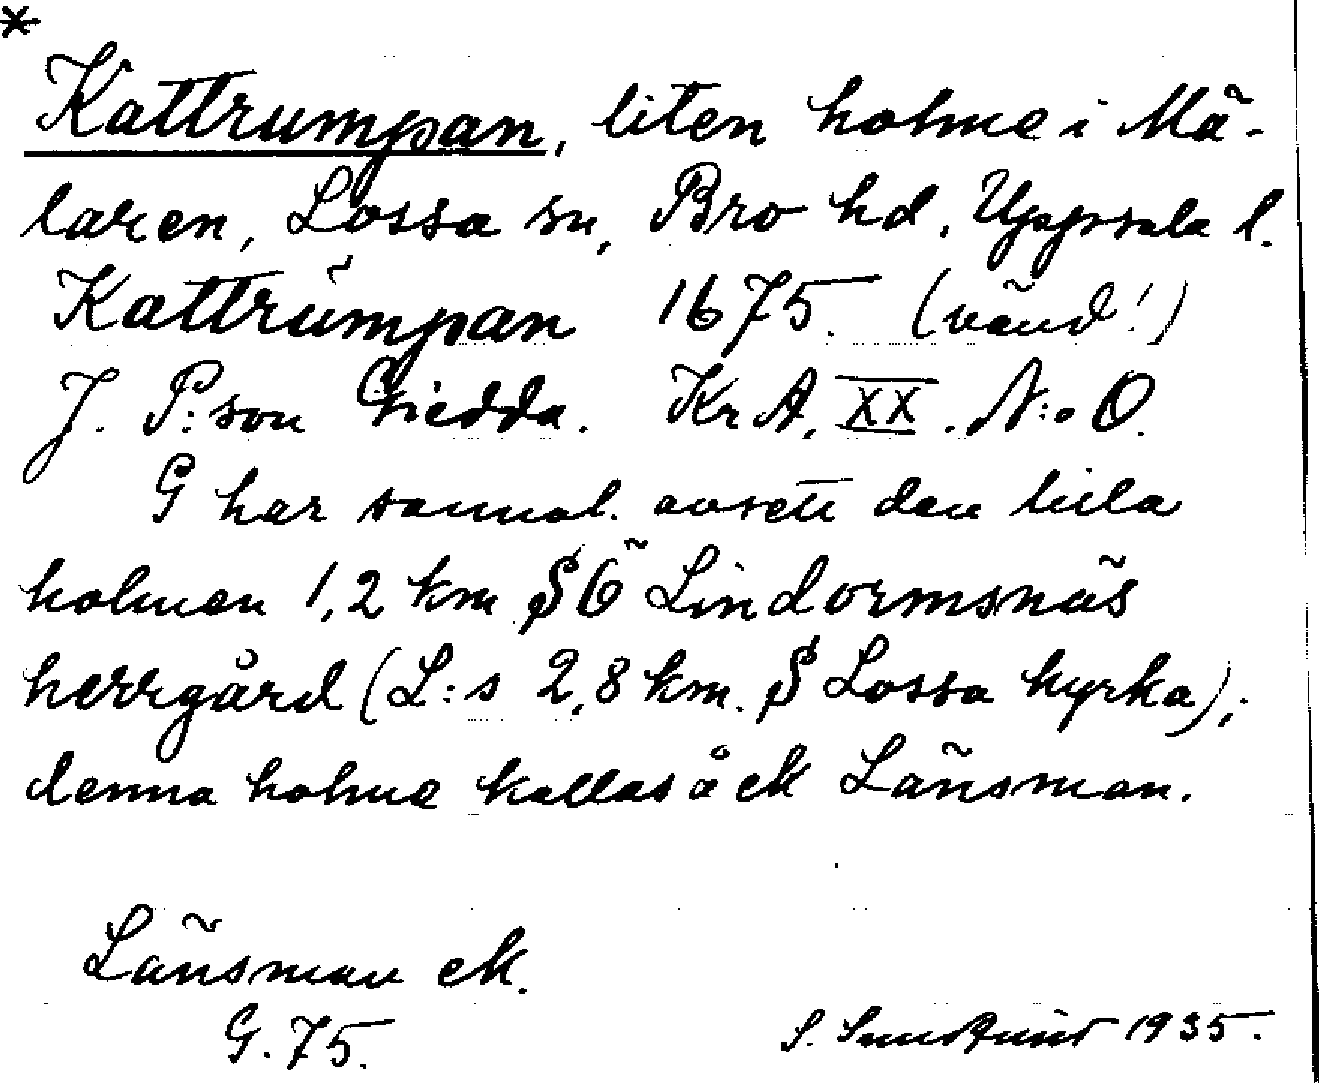 *
Kattrumpan, liten holme i Mä-
laren, Lossa sn, Bro hd, Uppsala l.
Kattrumpan 1675. (vänd!)
J. P:son Giedda. KrA, XX. N:o O.
G har sannol. avsett den lilla
holmen 1,2 km SÖ Lindormsnäs
herrgård (L:s 2,8 km. S Lossa kyrka);
denna holme kallas å ek Länsman.
Länsman ek.
G. 75.
S. 1935.